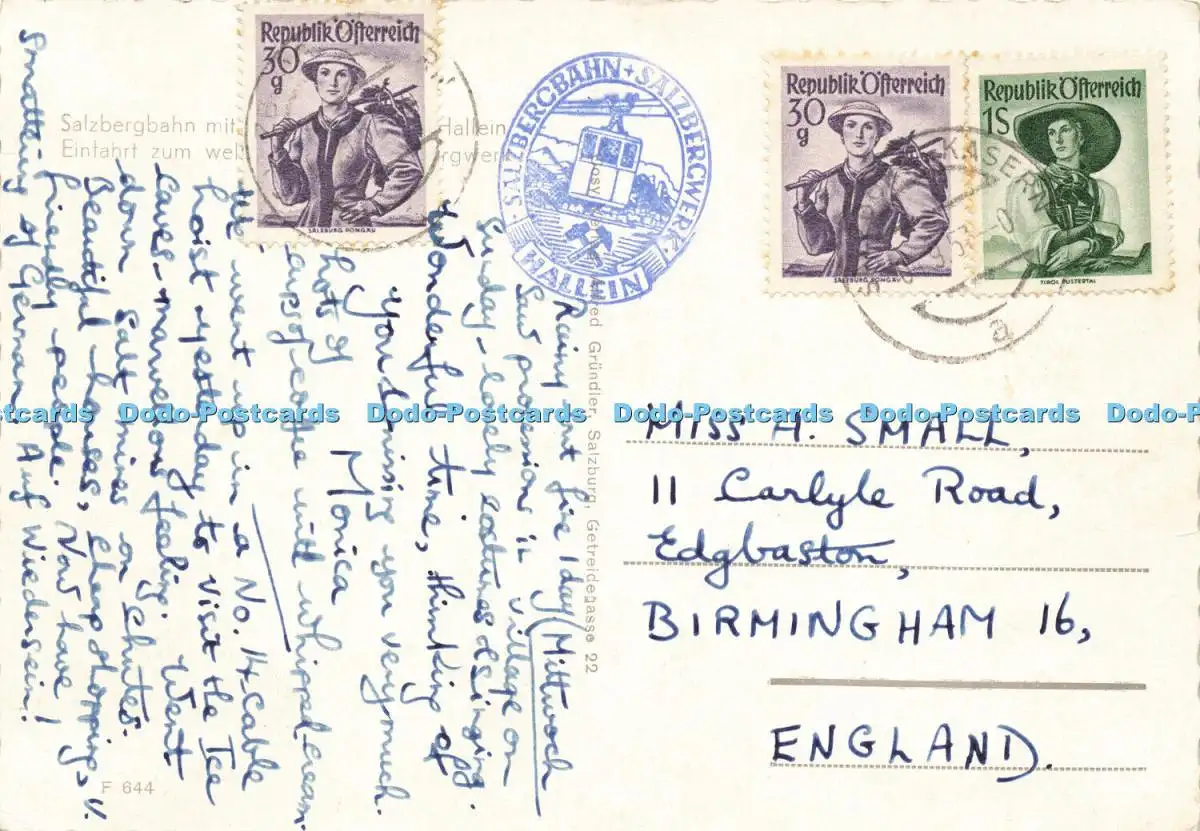 Republik Österreich
30 g
SALZBURG PONGAU
Republik Österreich
30 g
SALZBURG PONGAU
Republik Österreich
1S
TIROL PUSTERTAL
KASERN
a
SALZBERGBAHN + SALZBERGWERK
HALLEIN
Salzbergbahn mit Hallein
Einfahrt zum
Mittwoch
Raining but fine 1 day
Saw procession in village on
Sunday - lovely costumes & singing.
Wonderful time, thinking of
you & missing you very much.
Monica
Lots of
cups of coffee with whipped cream.
We went up in a No. 14 cable
hoist yesterday to visit the Ice
Caves - marvellous feeling. Went
down salt mines on chutes.
Beautiful houses, cheap shopping, v.
friendly people. Now have
smattering of German. Auf Wiedersein!
F 644
Gründler, Salzburg, Getreidegasse 22
MISS H. SMALL,
11 Carlyle Road,
Edgbaston,
BIRMINGHAM 16,
ENGLAND.
Postcards Dodo-Postcards Dodo-Postcards Dodo-Postcards Dodo-Postcards Dodo-Postcards